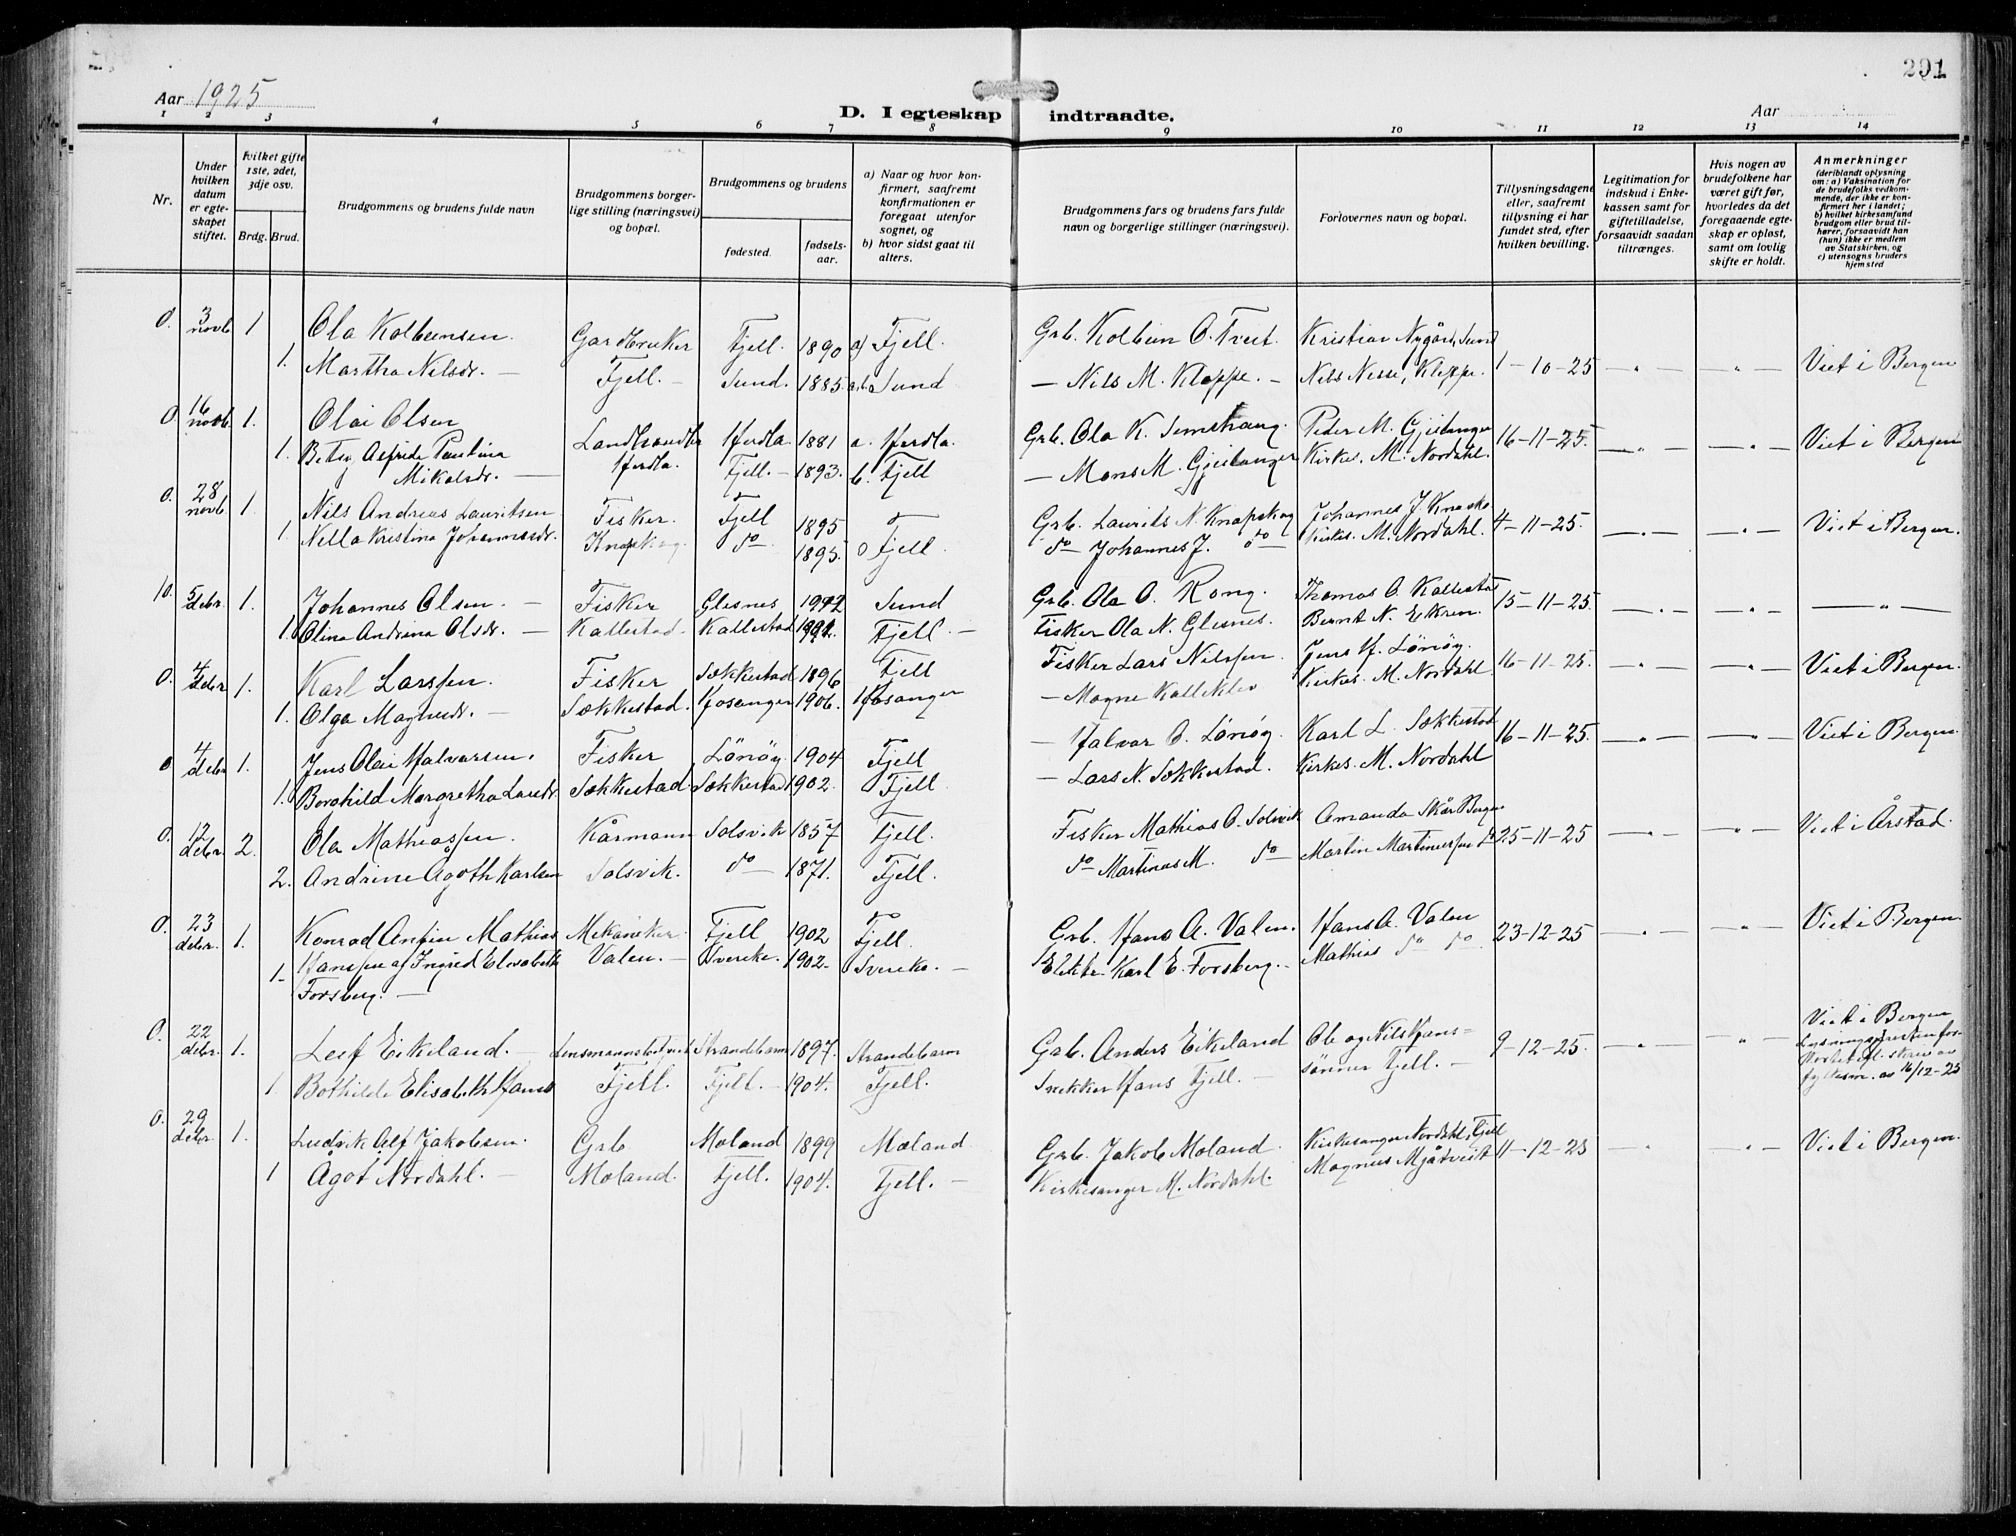 291
Aar 1925
D. I egteskap indtraadte.
Aar
1 2 3 4 5 6 7 8 9 10 11 12 13 14
Nr.
Under hvilken datum er egteskapet stiftet.
Hvilket gifte 1ste, 2det, 3dje osv.
Brdg. Brud.
Brudgommens og brudens fulde navn
Brudgommens borgerlige stilling (næringsvei) og bopæl.
Brudgommens og brudens
fødested.
fødselsaar.
a) Naar og hvor konfirmert, saafremt konfirmationen er foregaat utenfor sognet, og
b) hvor sidst gaat til alters.
Brudgommens fars og brudens fars fulde navn og borgerlige stillinger (næringsvei).
Forlovernes navn og bopæl.
Tillysningsdagene eller, saafremt tillysning ei har fundet sted, efter hvilken bevilling.
Legitimation for indskud i Enkekassen samt for giftetilladelse, forsaavidt saadan tiltrænges.
Hvis nogen av brudefolkene har været gift før, hvorledes da det foregaaende egteskap er opløst, samt om lovlig skifte er holdt.
Anmerkninger (deriblandt oplysning om: a) Vaksination for de brudefolks vedkommende, der ikke er konfirmert her i landet; b) hvilket kirkesamfund brudgom eller brud tilhører, forsaavidt han (hun) ikke er medlem av Statskirken, og c) utensogns bruders hjemsted
0. 3 novb. 1 Ola Kolbeensen. Gardbruker Fjell. 1890 a) Fjell. Grb. Kolbein O. Tveit. Kristian Nygård, Sund 1-10-25 — " — — " — Viet i Bergen
1. Martha Nilsdr. — Fjell. — Sund. 1885. a.b. Sund — Nils M. Kleppe. — Nils Nesse, Kleppe.
0 16 novb. 1. Olai Olsen Landhandler Herdla. 1881 a. Herdla. Grb. Ola K. Semstrang. Peder M. Gjeitanger 16-11-25. — " — — " — Viet i Bergen
1. Betsy Alfride Paulina Mikalsdr. — Herdla. Fjell. — 1893. b. Fjell — Mons M. Gjeitanger Kirkes. M. Nordahl.
0. 28 novb. 1. Nils Andreas Lauritsen Fisker. Fjell 1895 Fjell. Grb. Laurits N. Knapskog Johannes J. 4-11-25. — " — — " — Viet i Bergen.
1 Nella Kristina Johannesdr. Knapskog do — 1895. do — Johannes J. do — Kirkes. M. Nordahl.
10. 5 debr. 1. Johannes Olsen. — Fisker Glesnes 1902 Sund Grb. Ola O. Rong. Thomas O. Kallestad 15-11-25. — " — — " — — " —
1. Olina Andrina Olsdr. — Kallestad. Kallestad Fjell. — Fisker Ola N. Glesnes. Bernt N. Ekren.
0. 4 debr. 1. Karl Larssen. Fisker Sekkestad 1896 Fjell Fisker Lars Nilssen. Jens H. Lönøy. 16-11-25. — " — — " — Viet i Bergen.
1. Olga Magnesdr. — Sekkestad. Hosanger 1906. Hosanger — Magne Kalleklev Kirkes. M. Nordahl.
0 4 debr. 1. Jens Olai Halvarsen. Fisker Lönøy. 1904 Fjell — Halvar O. Lönøy. Karl L. Sekkestad 16-11-25. — " — — " — Viet i Bergen.
1. Borghild Margretha Larsdr. Sekkestad. Sekkestad 1902. Fjell — Lars N. Sekkestad. Kirkes. M. Nordahl
0. 12 debr. 2. Ola Mathiassen. Kårmann Solsvik 1857 Fjell. Fisker Mathias O. Solsvik Amanda Skår Bergen 25-11-25 — " — — " — Viet i Årstad.
2. Andrine Agoth Karlsen Solsvik. do — 1871. Fjell. do — Martinus M. do — Martin Martinussen do
0. 23 debr. 1. Konrad Anfin Mathias Hanssen Mekaniker Fjell 1902 Fjell. Grb. Hans A. Valen. Hans A. Valen 23-12-25 — " — — " — Viet i Bergen.
1- af Ingrid Elisabeth Forsberg. — Valen. — Sverike. 1902. Sverike. — Karl E. Forsberg. — Mathias do do.
0. 22 debr. 1. Leif Eikeland. — Lensmannsbetjent Strandebarm 1897. Strandebarm Grb. Anders Eikeland Ole og Nils Hans= 9-12-25. — " — — " — Viet i Bergen
1 Bothilde Elisabeth Hansd Fjell. Fjell. — 1904. Fjell. Snekker Hans Fjell. — sönner Fjell. — fylkesm. av 16/12-25
0. 29 debr. 1. Ludvik Alf Jakobsen. Grb Moland 1899 Moland Grb. Jakob Moland. Kirkesanger Nordahl, Fjell 11-12-25 — " — — " — Viet i Bergen.
1 Ågot Nordahl. — Moland. Fjell. 1904. Fjell. — Kirkesanger M. Nordahl. Magnus Mjåtveit